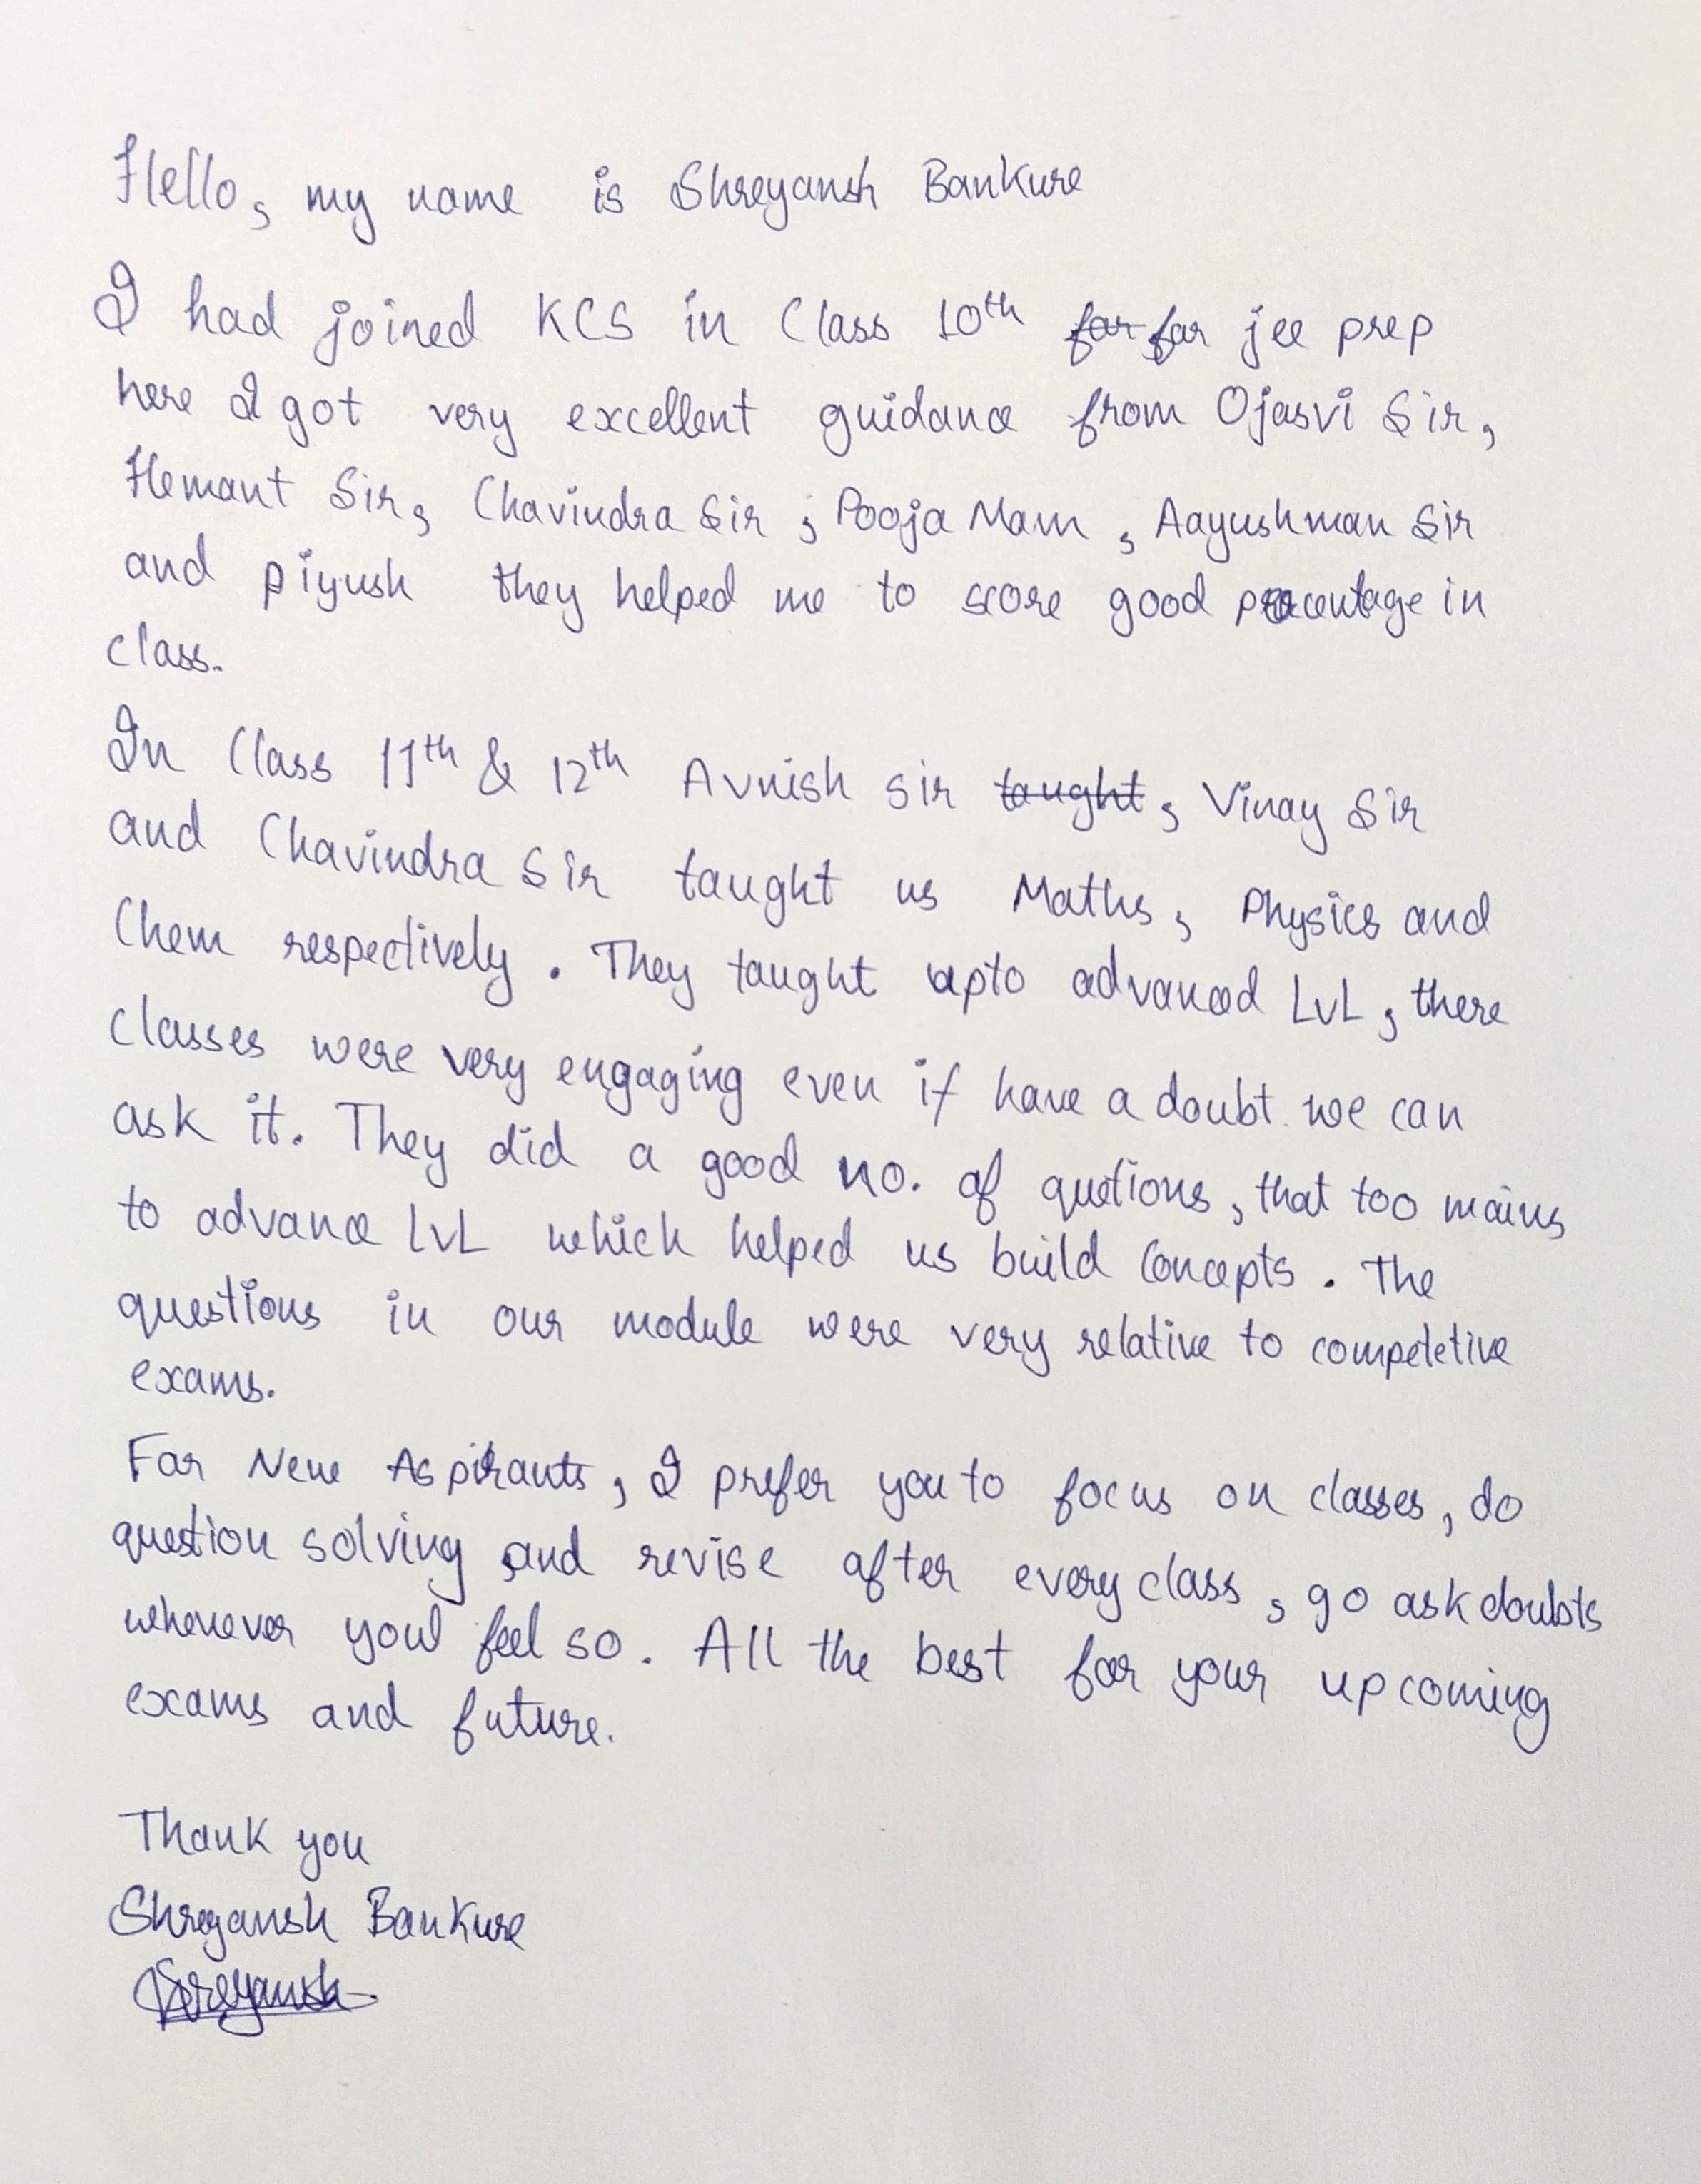 Hello, my name is Shreyansh Bankure
I had joined KCS in Class 10th for for jee prep
here I got very excellent guidance from Ojasvi Sir,
Hemant Sir, Chavindra Sir, Pooja Mam, Aayushman Sir
and piyush they helped me to score good percentage in
class.
In Class 11th & 12th Avnish sir taught, Vinay Sir
and Chavindra Sir taught us Maths, Physics and
Chem respectively. They taught upto advanced LvL, there
classes were very engaging even if have a doubt we can
ask it. They did a good no. of quetions, that too mains
to advance LvL which helped us build Concepts. The
questions in our module were very relative to competetive
exams.
For New Aspirants, I prefer you to focus on classes, do
question solving and revise after every class, go ask doubts
whenever you feel so. All the best for your upcoming
exams and future.
Thank you
Shreyansh Bankure
Shreyansh